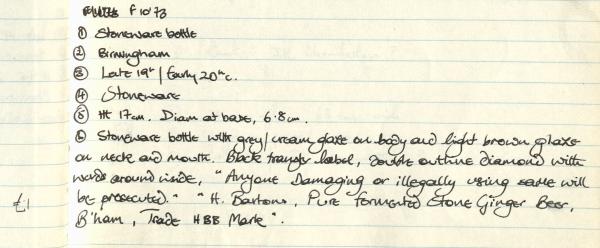 F10'73
① Stoneware bottle
② Birmingham
③ Late 19th / Early 20th c.
④ Stoneware
⑤ Ht 17cm. Diam at base, 6.8cm.
⑥ Stoneware bottle with grey/cream glaze on body and light brown glaze
on neck and mouth. Black transfer label, double outline diamond with
words around inside, "Anyone Damaging or illegally using same will
be prosecuted." "H. Bartons, Pure Fermented Stone Ginger Beer,
£1
B'ham, Trade HBB Mark".